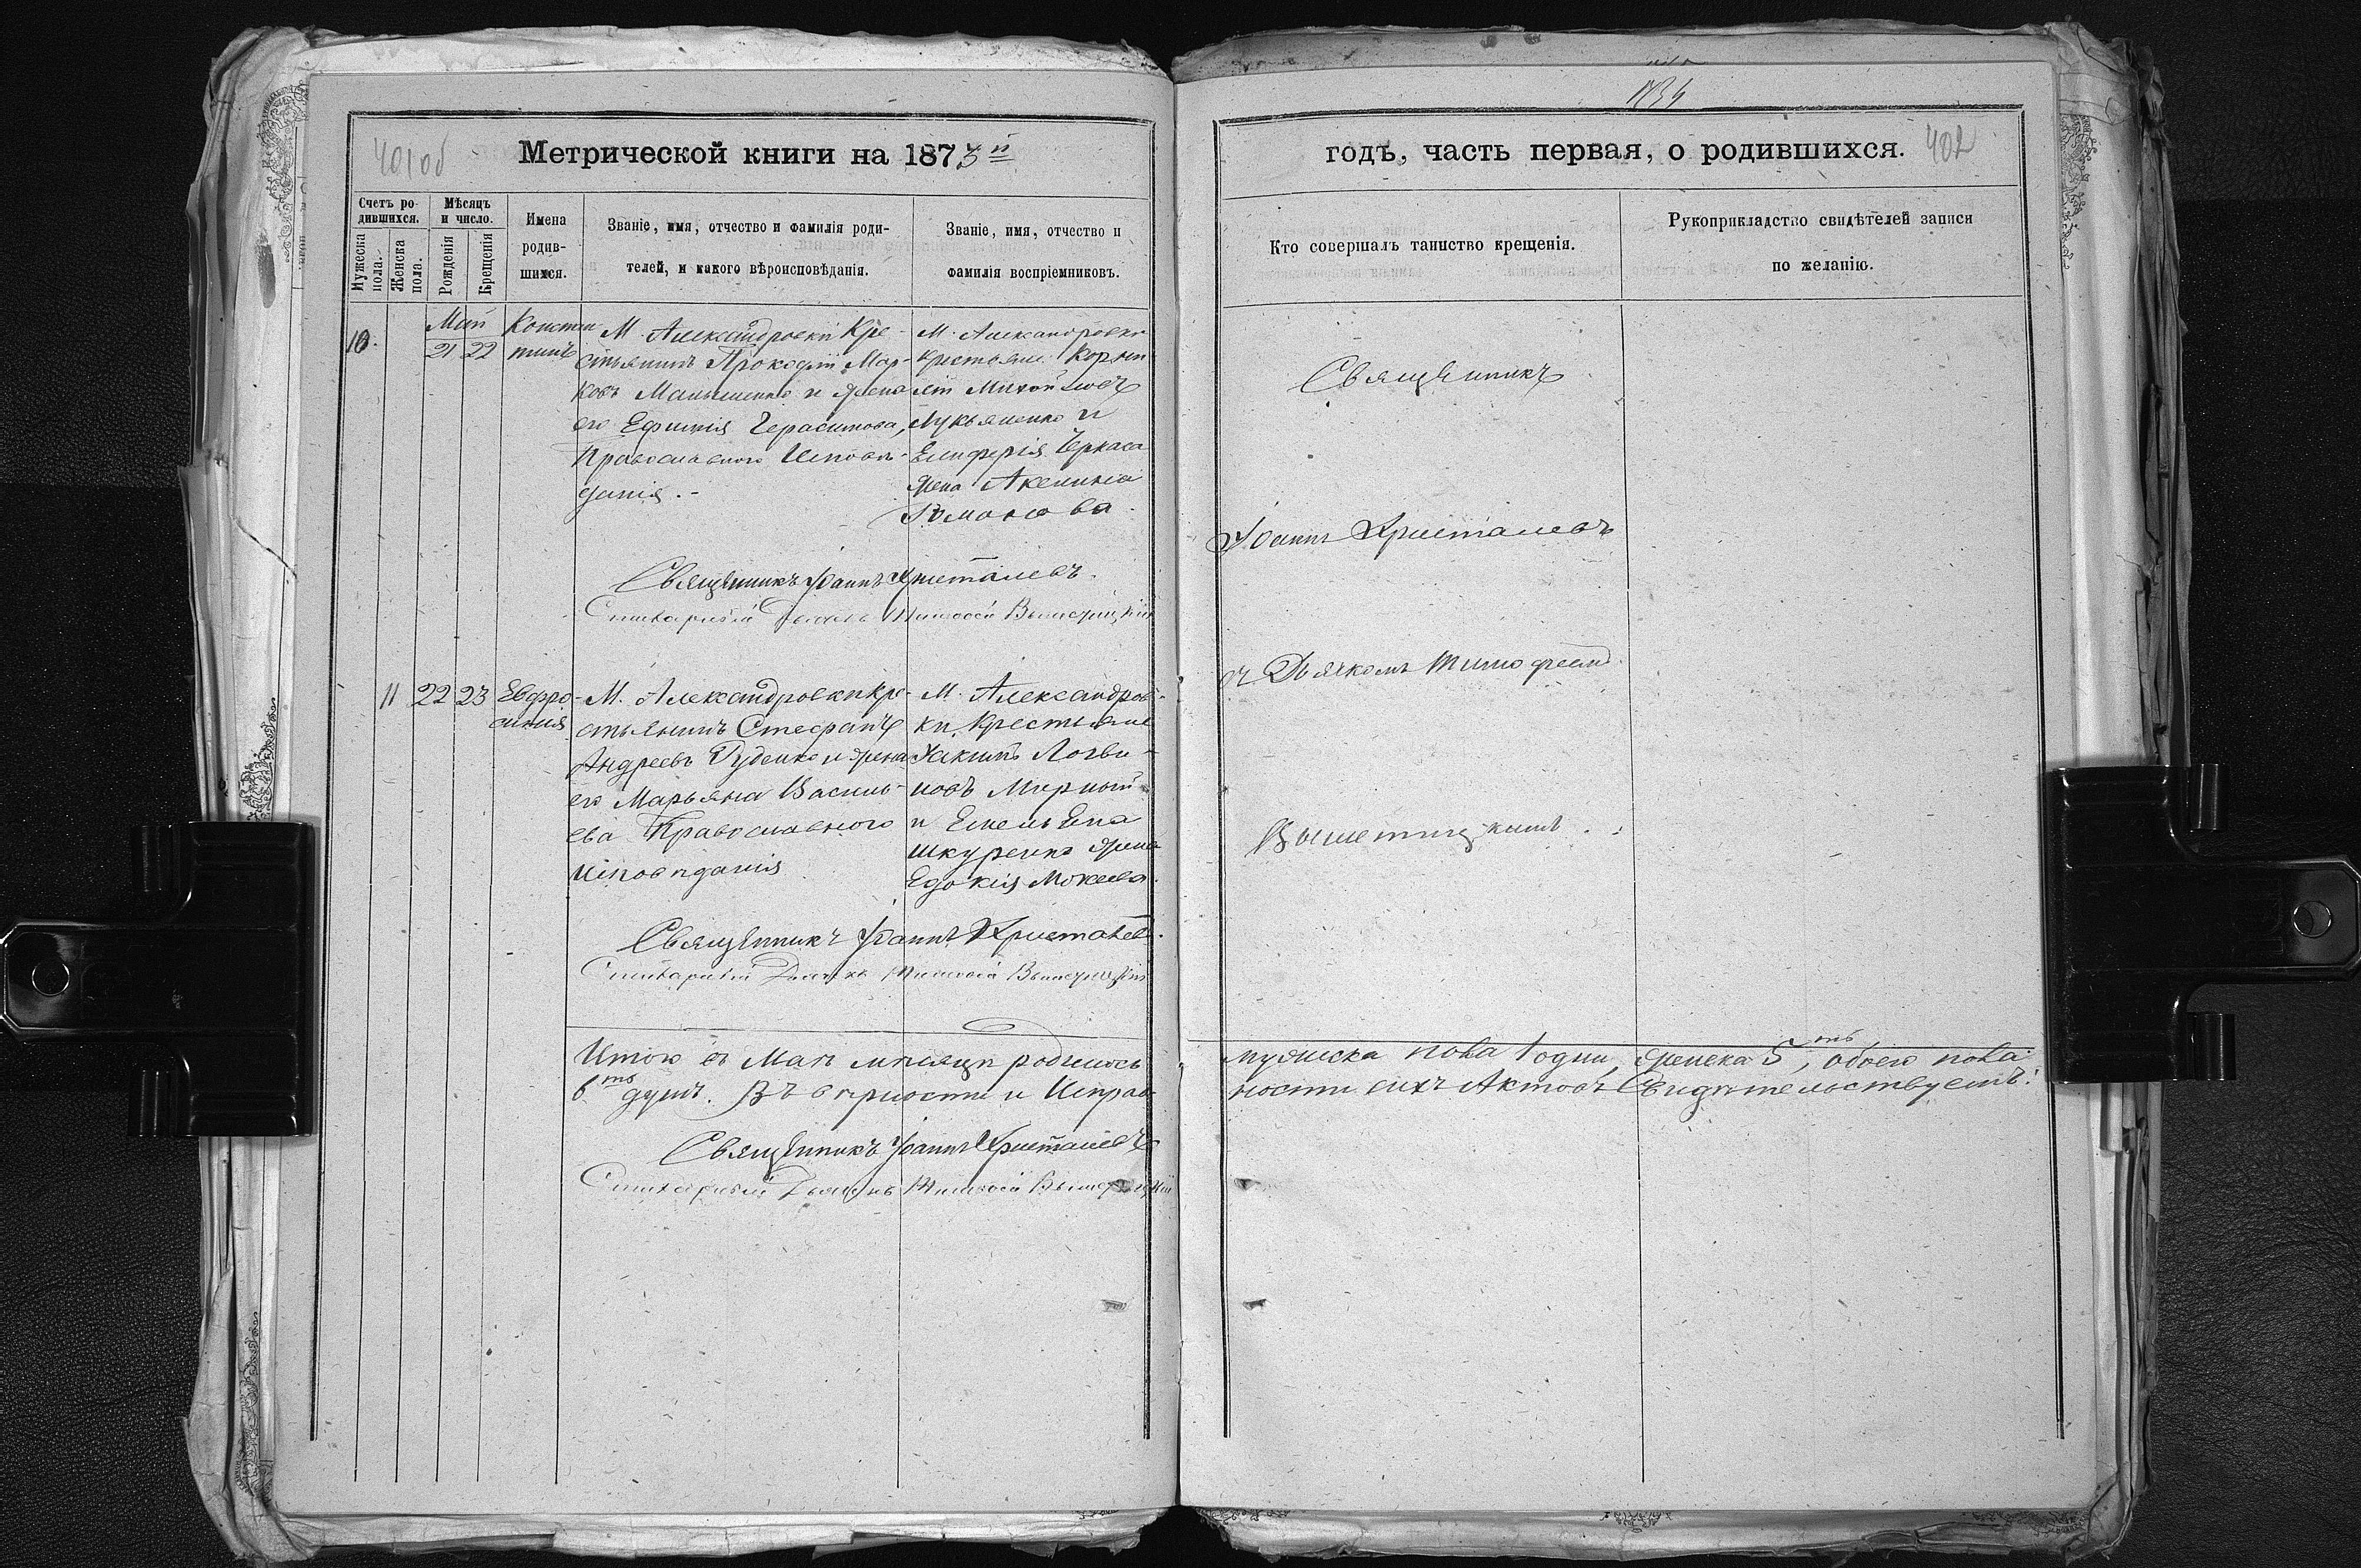 401об
Метрической книги на 1873й
Счетъ ро-
дившихся.
Мужеска
пола.
Женска
пола.
Мѣсяцъ
и число.
Рожденія
Крещенія
Имена
родив-
шихся.
Званіе, имя, отчество и фамилія роди-
телей, и какого вѣроисповѣданія.
Званіе, имя, отчество и
фамилія воспріемниковъ.
10.
Май
21 22
Констан
тинъ
М. Александровки Кре-
стьянинъ Прокофій Мар-
ковъ Манышенко и жена
его Ефимія Герасимова,
Православного Исповѣ-
данія.-
М. Александровки
крестьяне Корни
лій Михайловъ
Лукьяненко и
Елиферія Черкаса
жена Акилина
Романова
Священникъ Іоаннъ Христалевъ.
Стихарный Дьячекъ Тимофей
11
22 23
Евфро-
синия
М. Александровки Кре-
стьянинъ Стефанъ
Андреевъ Руденко и жена
его Марьяна Василь-
ева Православного
исповѣданія
М. Александров-
ки, крестьяне
Іакимъ Логви-
новъ Мирный
и Емельяна
Шкуренка жена
Едокія Мокеева.
Священникъ Іоаннъ Христалев.
Стихарный Дьячекъ Тимофей
Итого въ Маѣ мѣсяцѣ родилось
6ть душъ. Въ вѣрности и Исправ
Священникъ Іоаннъ Христалевъ
Стихарный Дьячекъ Тимофей
402
годъ, часть первая, о родившихся.
Кто совершалъ таинство крещенія.
Рукоприкладство свидѣтелей записи
по желанію.
Священникъ
Іоаннъ Христалевъ
съ Дьячкомъ Тимофеемъ
мужеска пола 1 одинъ, женска 5ть, обоего пола
ности сихъ Актовъ Свидѣтельствуемъ: